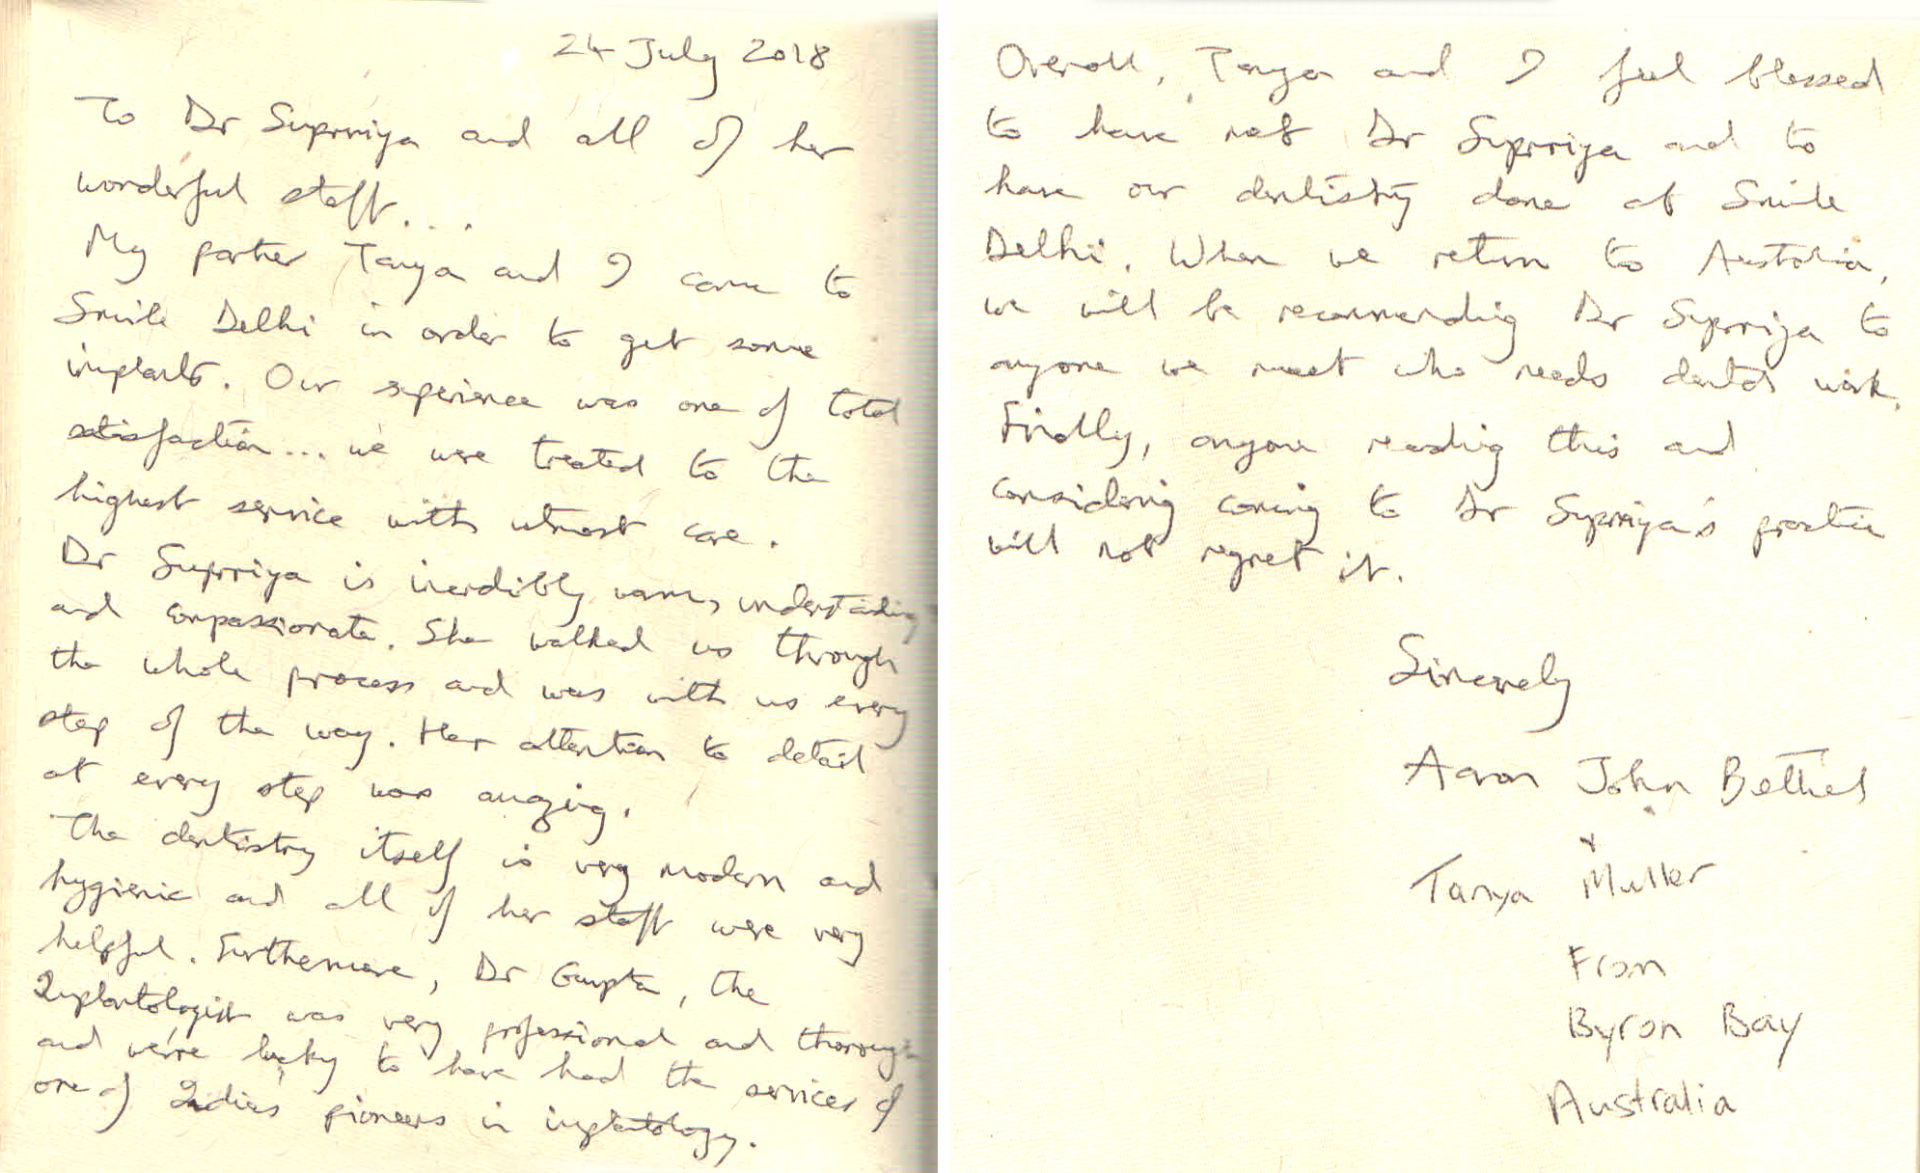 24 July 2018
To Dr Suprriya and all of her
wonderful staff....
My partner Tanya and I came to
Smile Delhi in order to get some
implants. Our experience was one of total
satisfaction... we were treated to the
highest service with utmost care.
Dr Suprriya is incredibly warm, understanding
and compassionate. She walked us through
the whole process and was with us every
step of the way. Her attention to detail
at every step was amazing.
The dentistry itself is very modern and
hygienic and all of her staff were very
helpful. Furthermore, Dr Gupta, the
Implantologist was very professional and thorough
and we're lucky to have had the services of
one of India's pioneers in implantology.
Overall, Tanya and I feel blessed
to have met Dr Suprriya and to
have our dentistry done at Smile
Delhi. When we return to Australia,
we will be recommending Dr Suprriya to
anyone we meet who needs dental work.
Finally, anyone reading this and
considering coming to Dr Suprriya's practice
will not regret it.
Sincerely
Aaron John Bethel
+
Tanya Muller
From
Byron Bay
Australia